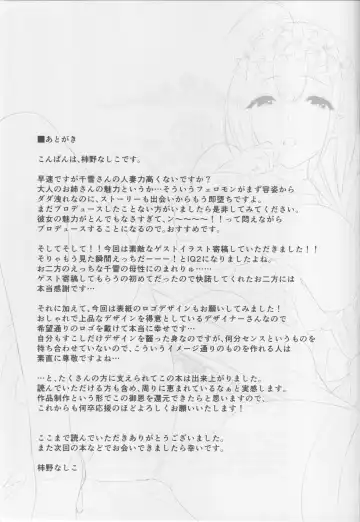 ■あとがき
こんばんは、柿野なしこです。
早速ですが千雪さんの人妻力高くないですか？
大人のお姉さんの魅力というか…そういうフェロモンがまず容姿から
ダダ洩れなのに、ストーリーも出会いからもう即堕ちですよ。
まだプロデュースしたことない方がいましたら是非してみてください。
彼女の魅力がとんでもなさすぎて、ン～～～～！！って悶えながら
プロデュースすることになるので。おすすめです。
そしてそして！！今回は素敵なゲストイラスト寄稿していただきました！！
そりゃもう見た瞬間えっちだーーー！とIQ2になりましたよね。
お二方のえっちな千雪の母性にのまれりゅ…
ゲスト寄稿してもらうの初めてだったので快諾してくれたお二方には
本当感謝です…
それに加えて、今回は表紙のロゴデザインもお願いしてみました！
おしゃれで上品なデザインを得意としているデザイナーさんなので
希望通りのロゴを戴けて本当に幸せです…
自分もすこしだけデザインを齧った身なのですが、何分センスというものを
持ち合わせていないので、こういうイメージ通りのものを作れる人は
素直に尊敬しますよね…
…と、たくさんの方に支えられてこの本は出来上がりました。
読んでいただける方も含め、周りに恵まれているなぁと実感します。
作品制作という形でこの御恩を還元できたらと思いますので、
これからも何卒応援のほどよろしくお願いいたします！
ここまで読んでいただきありがとうございました。
また次回の本などでお会いできましたら幸いです。
柿野なしこ